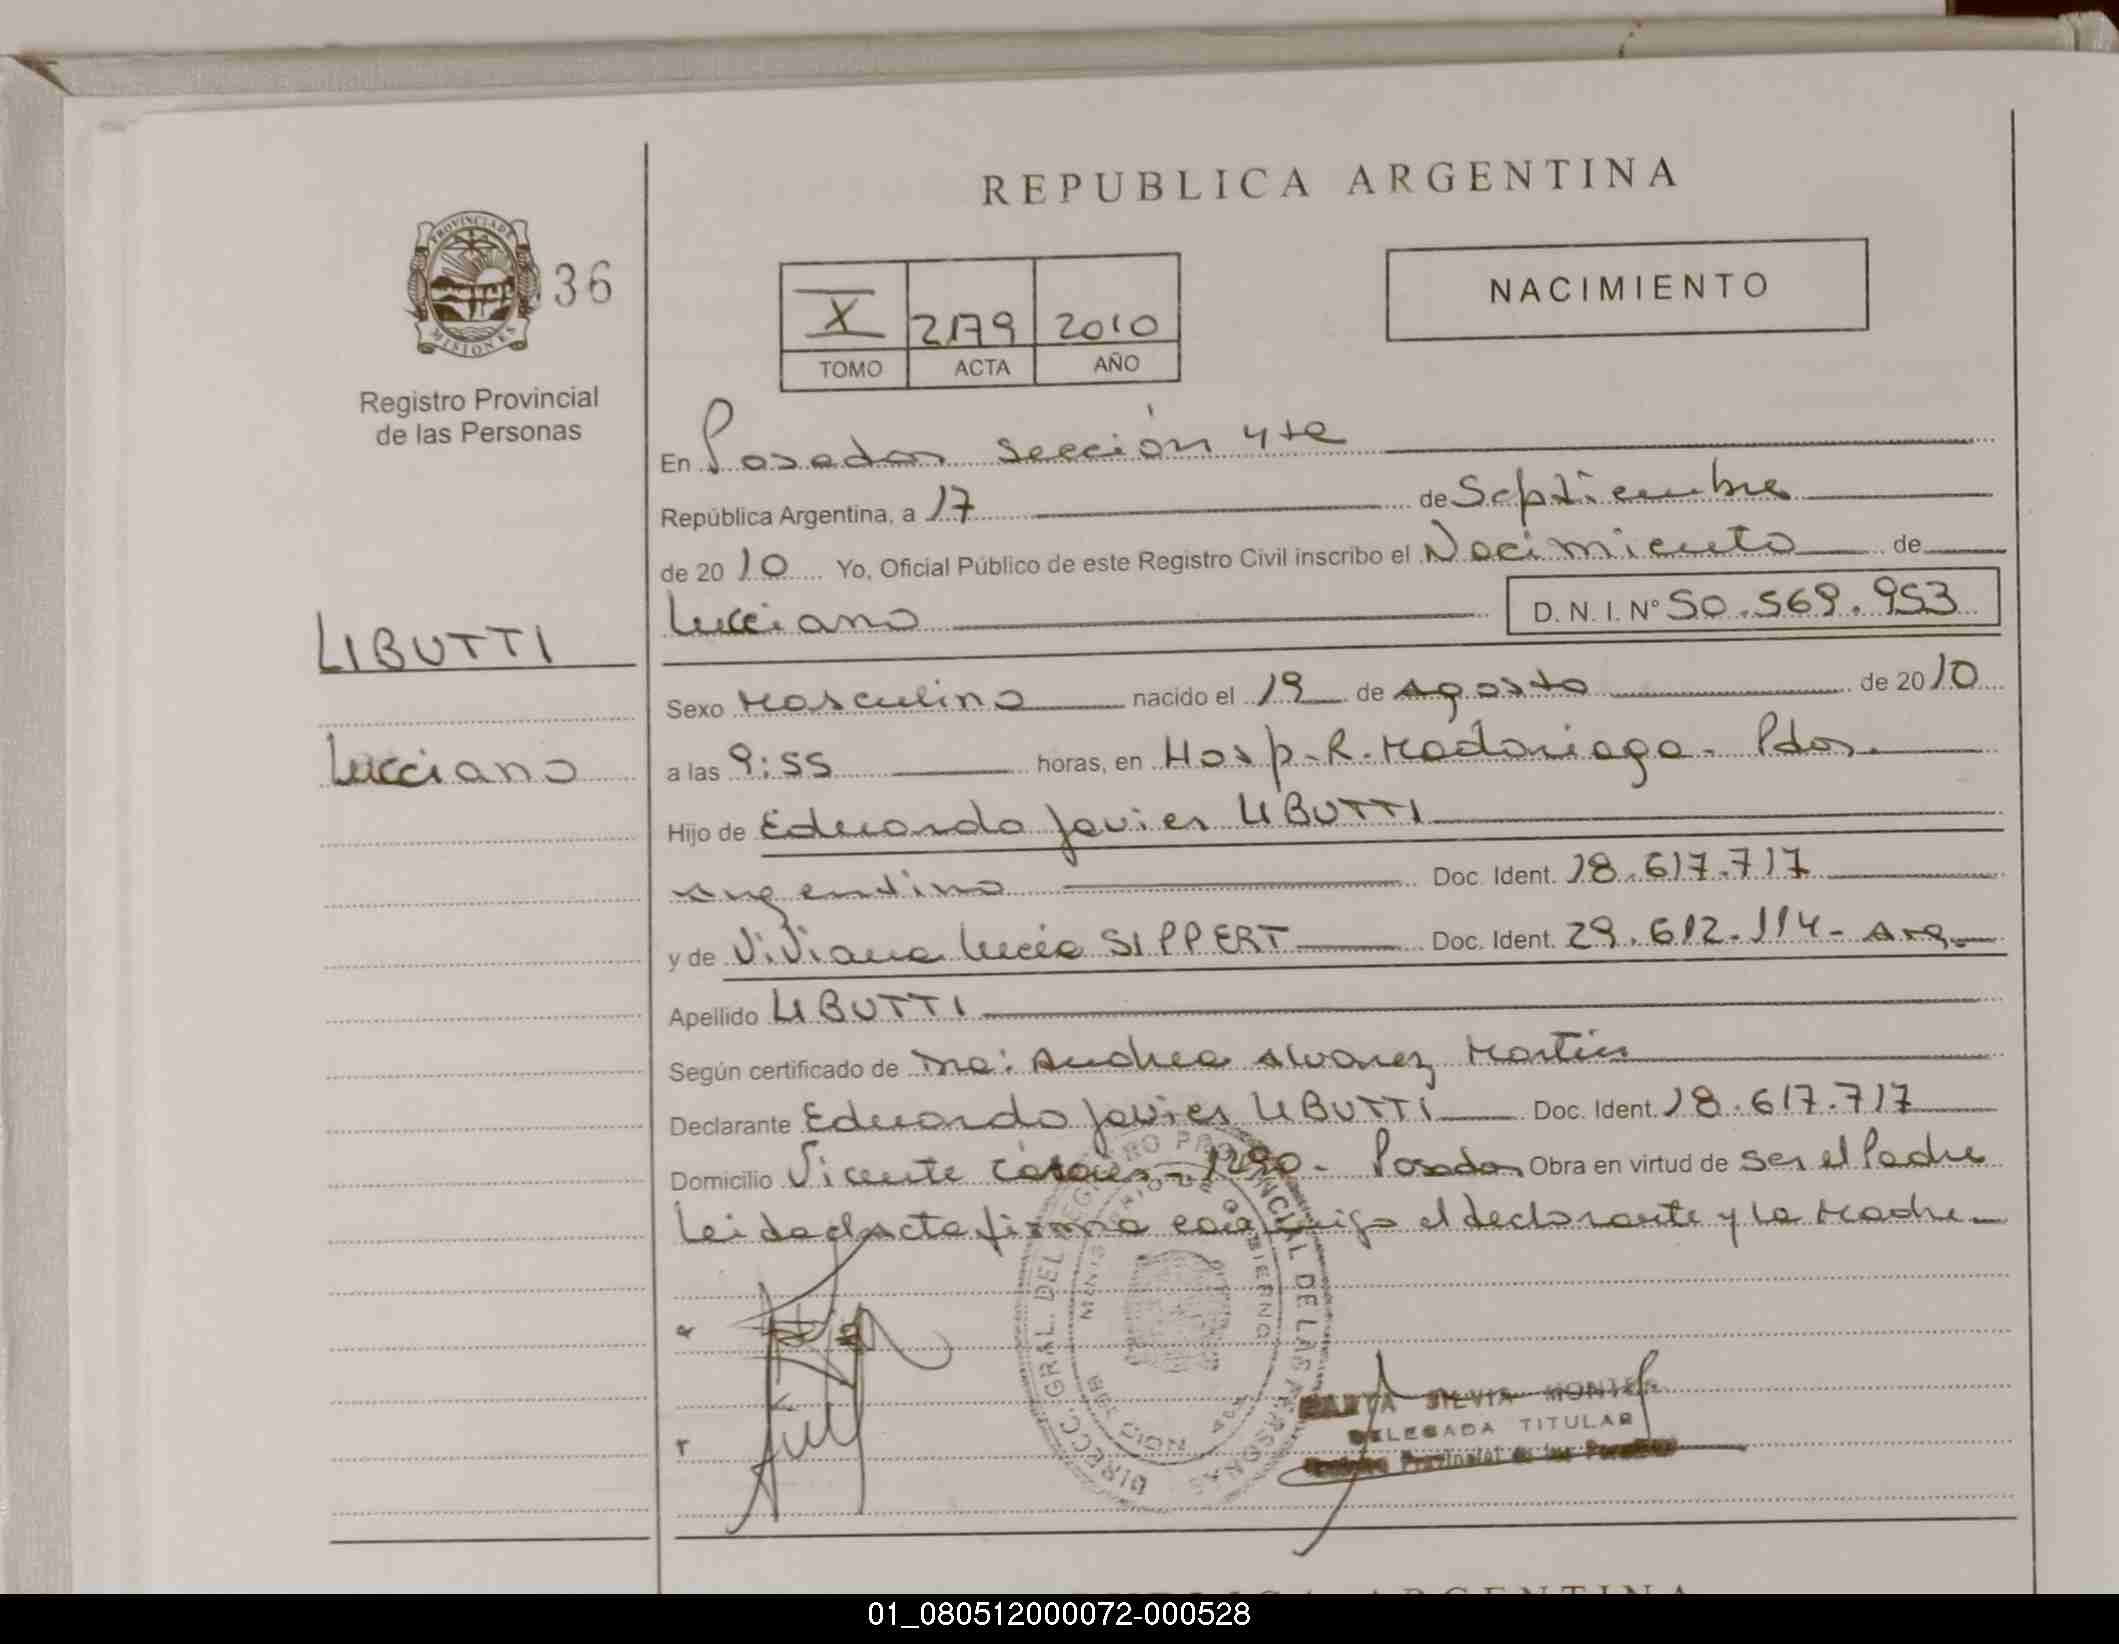 REPUBLICA ARGENTINA
PROVINCIA DE
MISIONES
36
Registro Provincial
de las Personas
X 2179 2010
TOMO ACTA AÑO
NACIMIENTO
En Posadas sección 4ta
República Argentina, a 17 de Septiembre
de 2010 Yo, Oficial Público de este Registro Civil inscribo el Nacimiento de
Lucciano D. N. I. Nº 50.569.953
LIBUTTI
Sexo Masculino nacido el 19 de Agosto de 2010
Lucciano
a las 9:55 horas, en Hosp. R. Madariaga - Pdas.
Hijo de Eduardo Javier LIBUTTI
Argentino Doc. Ident. 18.617.717
y de Viviana Lucía SIPPERT Doc. Ident. 29.612.114 - Arg.
Apellido LIBUTTI
Según certificado de Dra: Andrea Alvarez Martin
Declarante Eduardo Javier LIBUTTI Doc. Ident. 18.617.717
Domicilio Vicente 1290 - Posadas Obra en virtud de ser el Padre
Leida el acta firma conmigo el declarante y la Madre
DIRECC. GRAL. DEL REGISTRO PROVINCIAL DE LAS PERSONAS
MINISTERIO DE GOBIERNO
MARTA SILVIA MONTES
DELEGADA TITULAR
Registro Provincial de las Personas
01_080512000072-000528